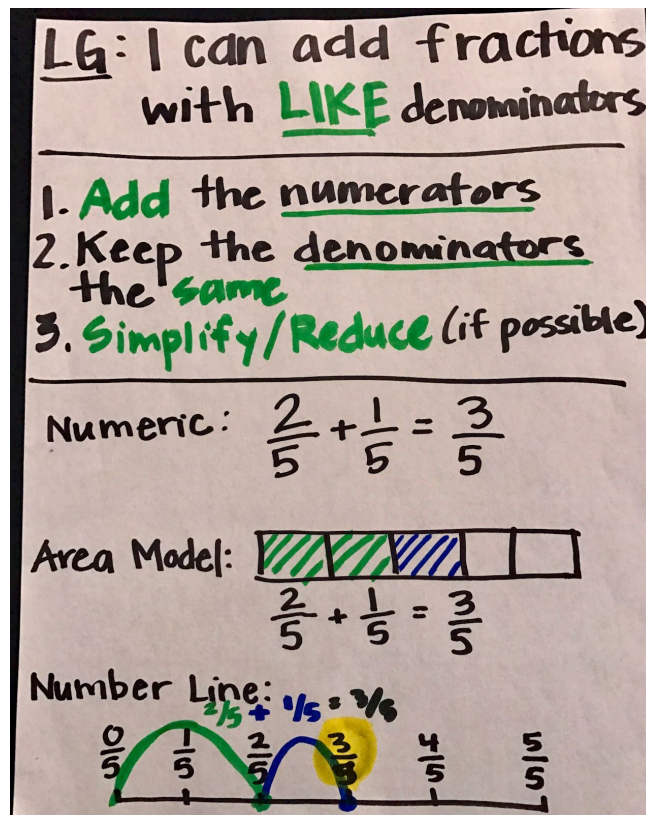 LG: I can add fractions
with LIKE denominators
1. Add the numerators
2. Keep the denominators
the same
3. Simplify/Reduce (if possible)
Numeric: 2/5 + 1/5 = 3/5
Area Model:
2/5 + 1/5 = 3/5
Number Line:
2/5 + 1/5 = 3/5
0/5 1/5 2/5 3/5 4/5 5/5